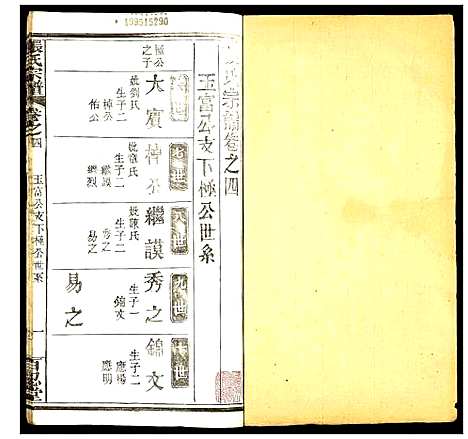 109515290
氏宗譜卷之四
玉富公支下極公世系
世
極公之子
大寶
娶劉氏
生子二
椿公
怡公
七世
椿公
生子二
繼謨
繼烈
八世
繼謨
娶陳氏
生子二
秀之
易之
九世
秀之
生子一
錦文
易之
十世
錦文
生子二
應楊
應明
張氏宗譜
卷之四
玉富公支下極公世系
一
百忍堂